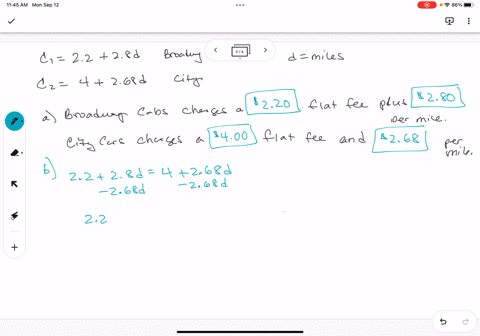 11:45 AM Mon Sep 12
86%
C₁ = 2.2 + 2.8d Broadway d = miles
C₂ = 4 + 2.68d City
a) Broadway Cabs charges a $2.20 flat fee plus $2.80 per mile.
City Cars charges a $4.00 flat fee and $2.68 per mile.
b) 2.2 + 2.8d = 4 + 2.68d
-2.68d -2.68d
2.2